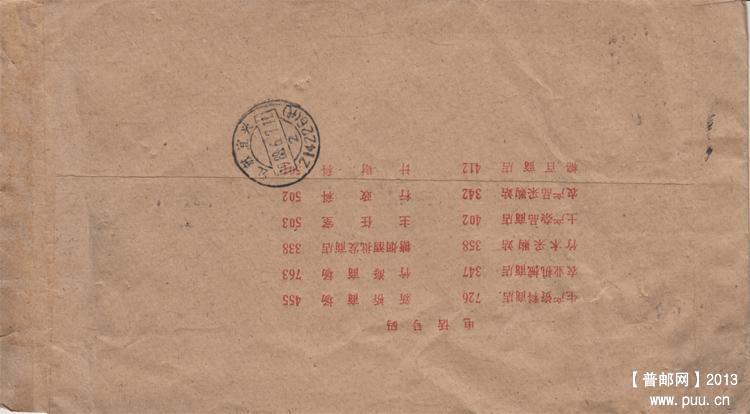 电话号码
生产资料商店 726 新桥商场 455
农业机械商店 347 竹海商场 763
竹木采购站 358 糖烟酒批发商店 338
土产杂品商店 402 主任室 503
农产品采购站 342 行政科 502
百商店 412 计财科
江苏宜兴
214226
【普邮网】2013
www.puu.cn